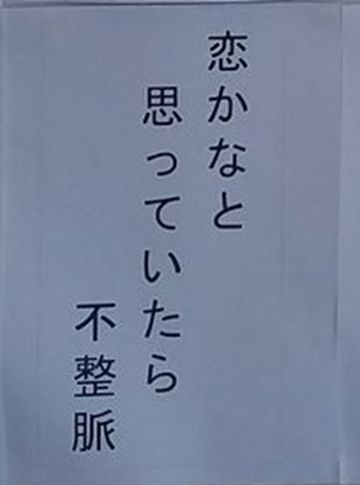 恋かなと
思っていたら
不整脈